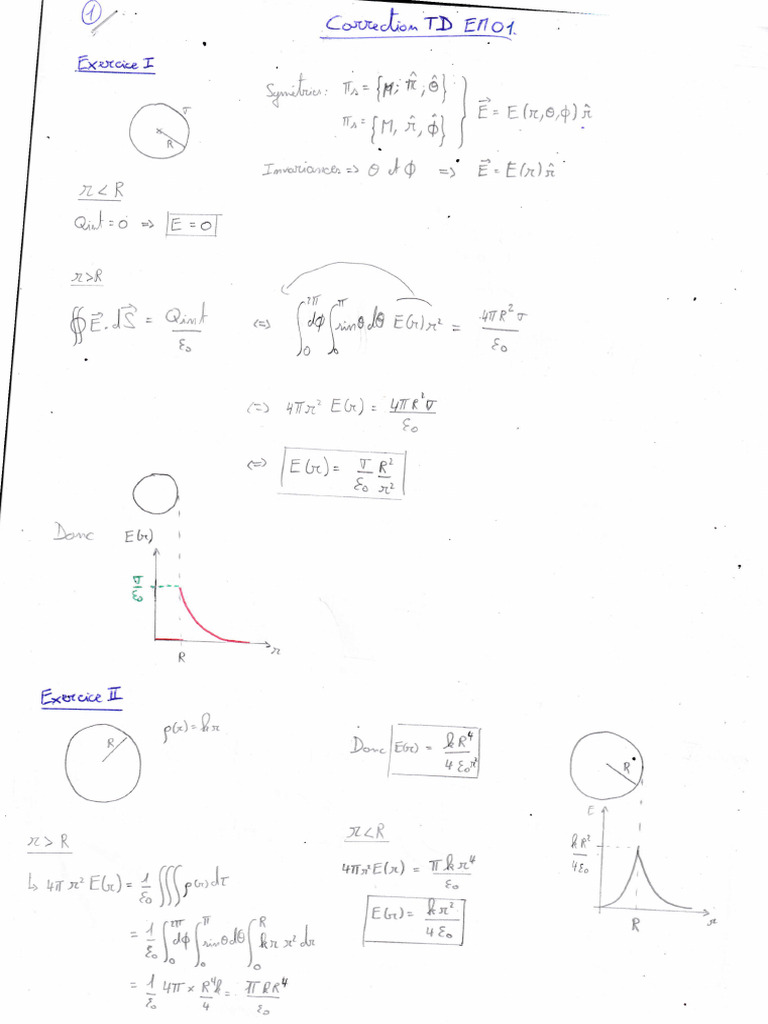 ①
Correction TD EM01.
Exercice I
σ
R
Symétries: πs = {M; r̂; θ̂}
πs = {M, r̂, φ̂}
E⃗ = E(r,θ,φ) r̂
Invariances => θ et φ => E⃗ = E(r) r̂
r < R
Qint = 0 => E = 0
r > R
∯ E⃗.dS⃗ = Qint/ε₀ <=> ∫₀^2π dφ ∫₀^π sinθ dθ E(r) r² = 4πR²σ/ε₀
<=> 4πr² E(r) = 4πR²σ/ε₀
<=> E(r) = σ/ε₀ R²/r²
Donc E(r)
σ/ε₀
R
r
Exercice II
R
ρ(r) = kr
r > R
↳ 4πr² E(r) = 1/ε₀ ∭ ρ(r) dτ
= 1/ε₀ ∫₀^2π dφ ∫₀^π sinθ dθ ∫₀^R kr r² dr
= 1/ε₀ 4π × R⁴k/4 = πkR⁴/ε₀
Donc E(r) = kR⁴/4ε₀r²
r < R
4πr² E(r) = πkr⁴/ε₀
E(r) = kr²/4ε₀
R
E
kR²/4ε₀
R
r